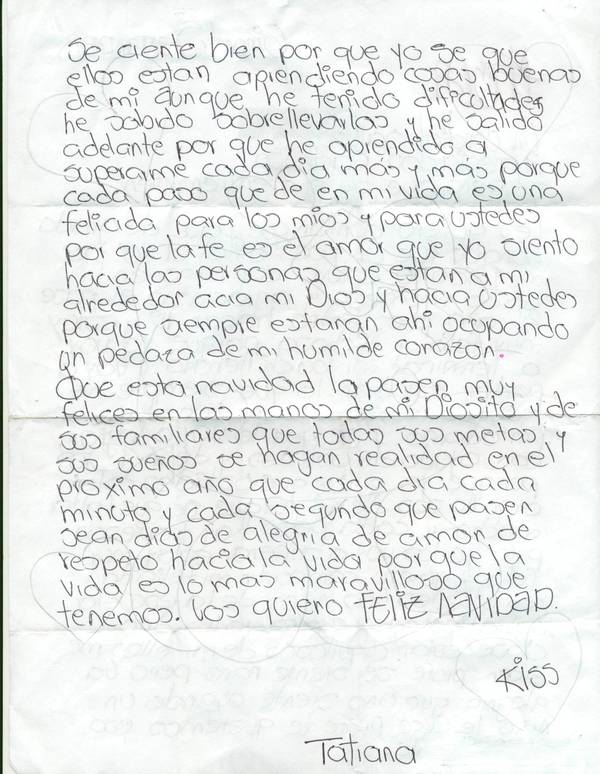 Se ciente bien por que yo se que
ellos estan apiendiendo cosas buenas
de mi aunque he tenido dificultades
he sabido sobrellevarlas y he salido
adelante por que he aprendido a
superarme cada dia más y más porque
cada paso que de en mi vida es una
feliciada para los mios y para ustedes
por que la fe es el amor que yo siento
hacia las personas que estan a mi
alrededor acia mi Dios y hacia ustedes
porque siempre estaran ahi ocupando
un pedaza de mi humilde corazon.
Que esta navidad la pasen muy
felices en las manos de mi Diosito y de
sus familiares que todas sus metas y
sus sueños se hagan realidad en el
proximo año que cada dia cada
minuto y cada segundo que pasen
sean dias de alegria de amor de
respeto hacia la vida por que la
vida es lo mas maravilloso que
tenemos. Los quiero FELIZ NAVIDAD.
Kiss
Tatiana